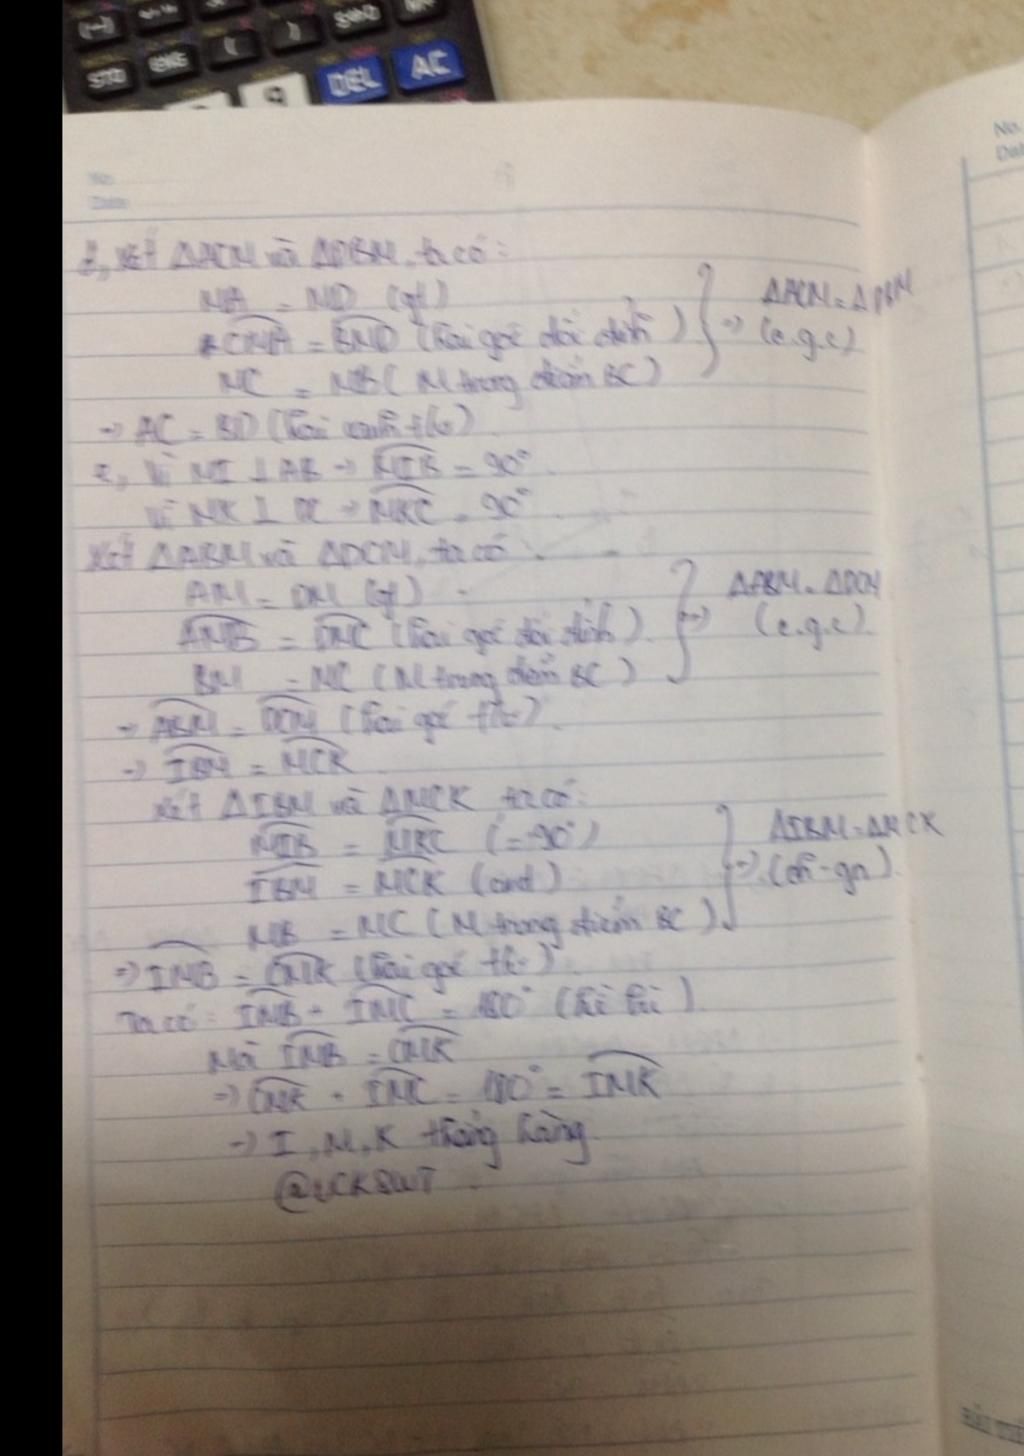 (-)
STO ENG ( )
DEL AC
9
No.
Date
No.
Xét ΔACM và ΔDBM, ta có:
MA = MD (gt)
CMA = BMD (hai góc đối đỉnh)
MC = MB (M trung điểm BC)
ΔACM = ΔDBM
=> (c.g.c)
→ AC = BD (hai cạnh t/ư)
Vì MI ⊥ AB → MIB = 90°
Vì MK ⊥ DC → MKC = 90°
Xét ΔABM và ΔDCM, ta có:
AM = DM (gt)
AMB = DMC (hai góc đối đỉnh)
BM = MC (M trung điểm BC)
ΔABM = ΔDCM
=> (c.g.c).
→ ABM = DCM (hai góc t/ư).
→ IBM = MCK
Xét ΔIBM và ΔMCK ta có:
MIB = MKC (= 90°)
IBM = MCK (cmt)
MB = MC (M trung điểm BC)
ΔIBM = ΔMCK
=> (ch-gn).
=> IMB = CMK (hai góc t/ư).
Ta có: IMB + IMC = 180° (kề bù).
Mà IMB = CMK
=> CMK + IMC = 180° = IMK
→ I, M, K thẳng hàng.